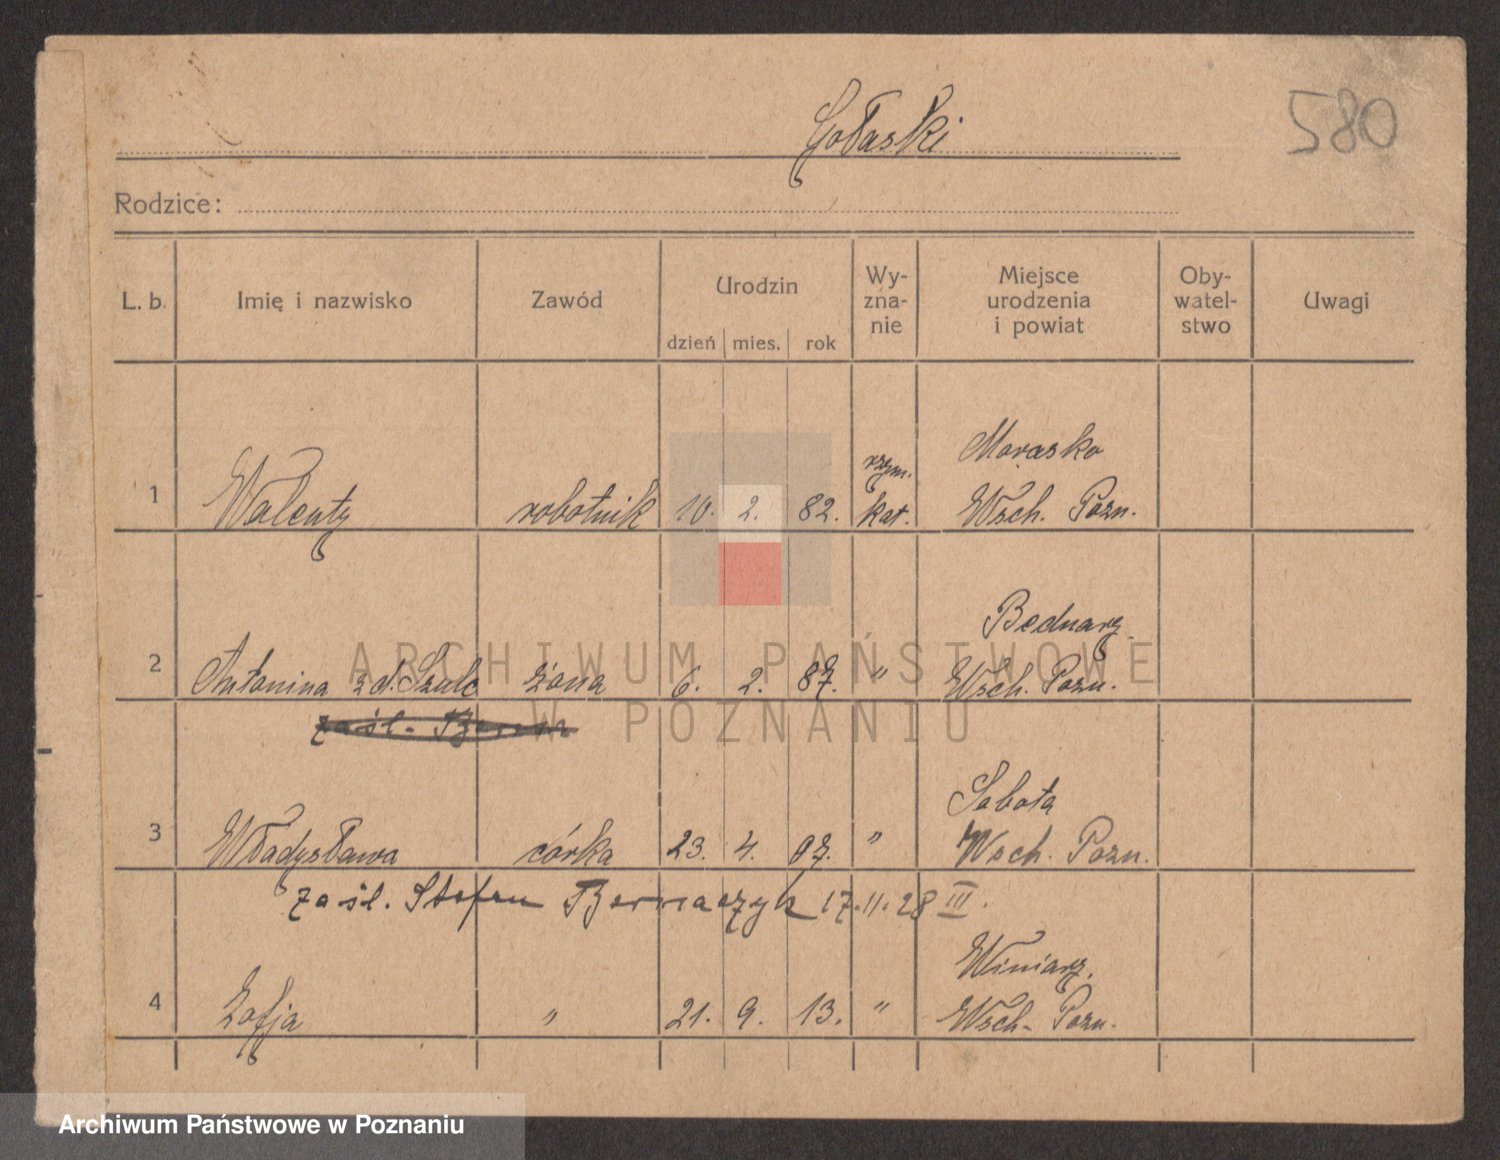 Gołaski
580
Rodzice:
L. b. Imię i nazwisko Zawód Urodzin dzień mies. rok Wy-zna-nie Miejsce urodzenia i powiat Oby-watel-stwo Uwagi
1 Walenty robotnik 10. 2. 82. rzym. kat. Morasko Wsch. Pozn.
2 Antonina z d. Szulc żona 6. 2. 87. " Bednarz. Wsch. Pozn.
zaśl.
3 Władysława córka 23. 4. 07. " Sobota Wsch. Pozn.
zaśl. Stefan Bernaczyk 17.11.28 III.
4 Zofja " 21. 9. 13. " Winiarz. Wsch. Pozn.
ARCHIWUM PAŃSTWOWE
W POZNANIU
Archiwum Państwowe w Poznaniu